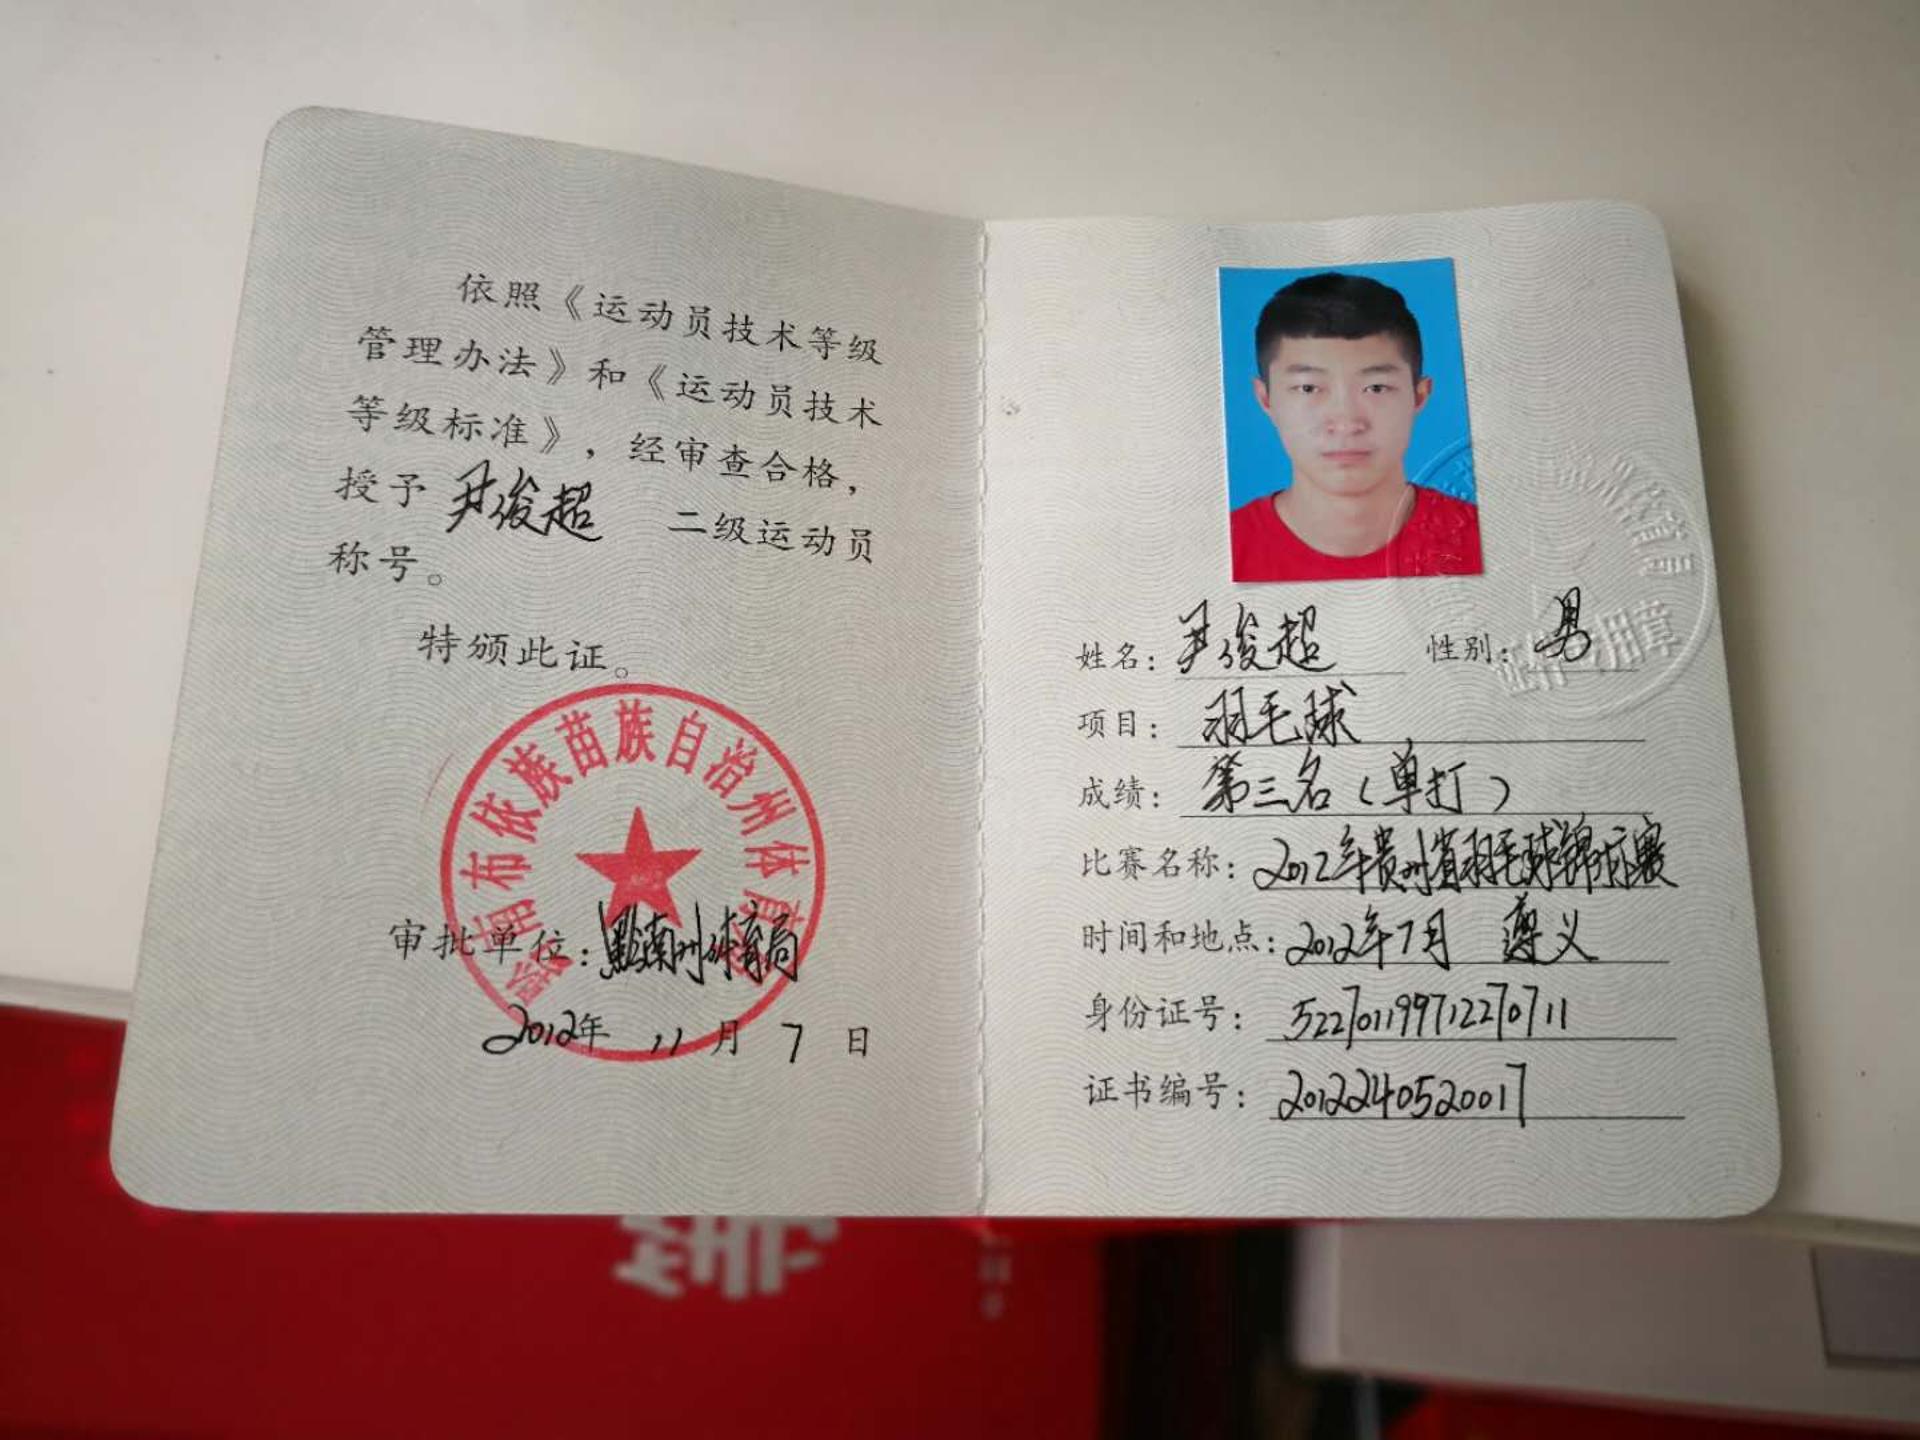 依照《运动员技术等级
管理办法》和《运动员技术
等级标准》，经审查合格，
授予 尹俊超 二级运动员
称号。
特颁此证。
黔南布依族苗族自治州体育局
审批单位：黔南州体育局
2012年 11 月 7 日
姓名：尹俊超 性别：男
项目：羽毛球
成绩：第三名（单打）
比赛名称：2012年贵州省羽毛球锦标赛
时间和地点：2012年7月 遵义
身份证号：522701199712270711
证书编号：2012240520017